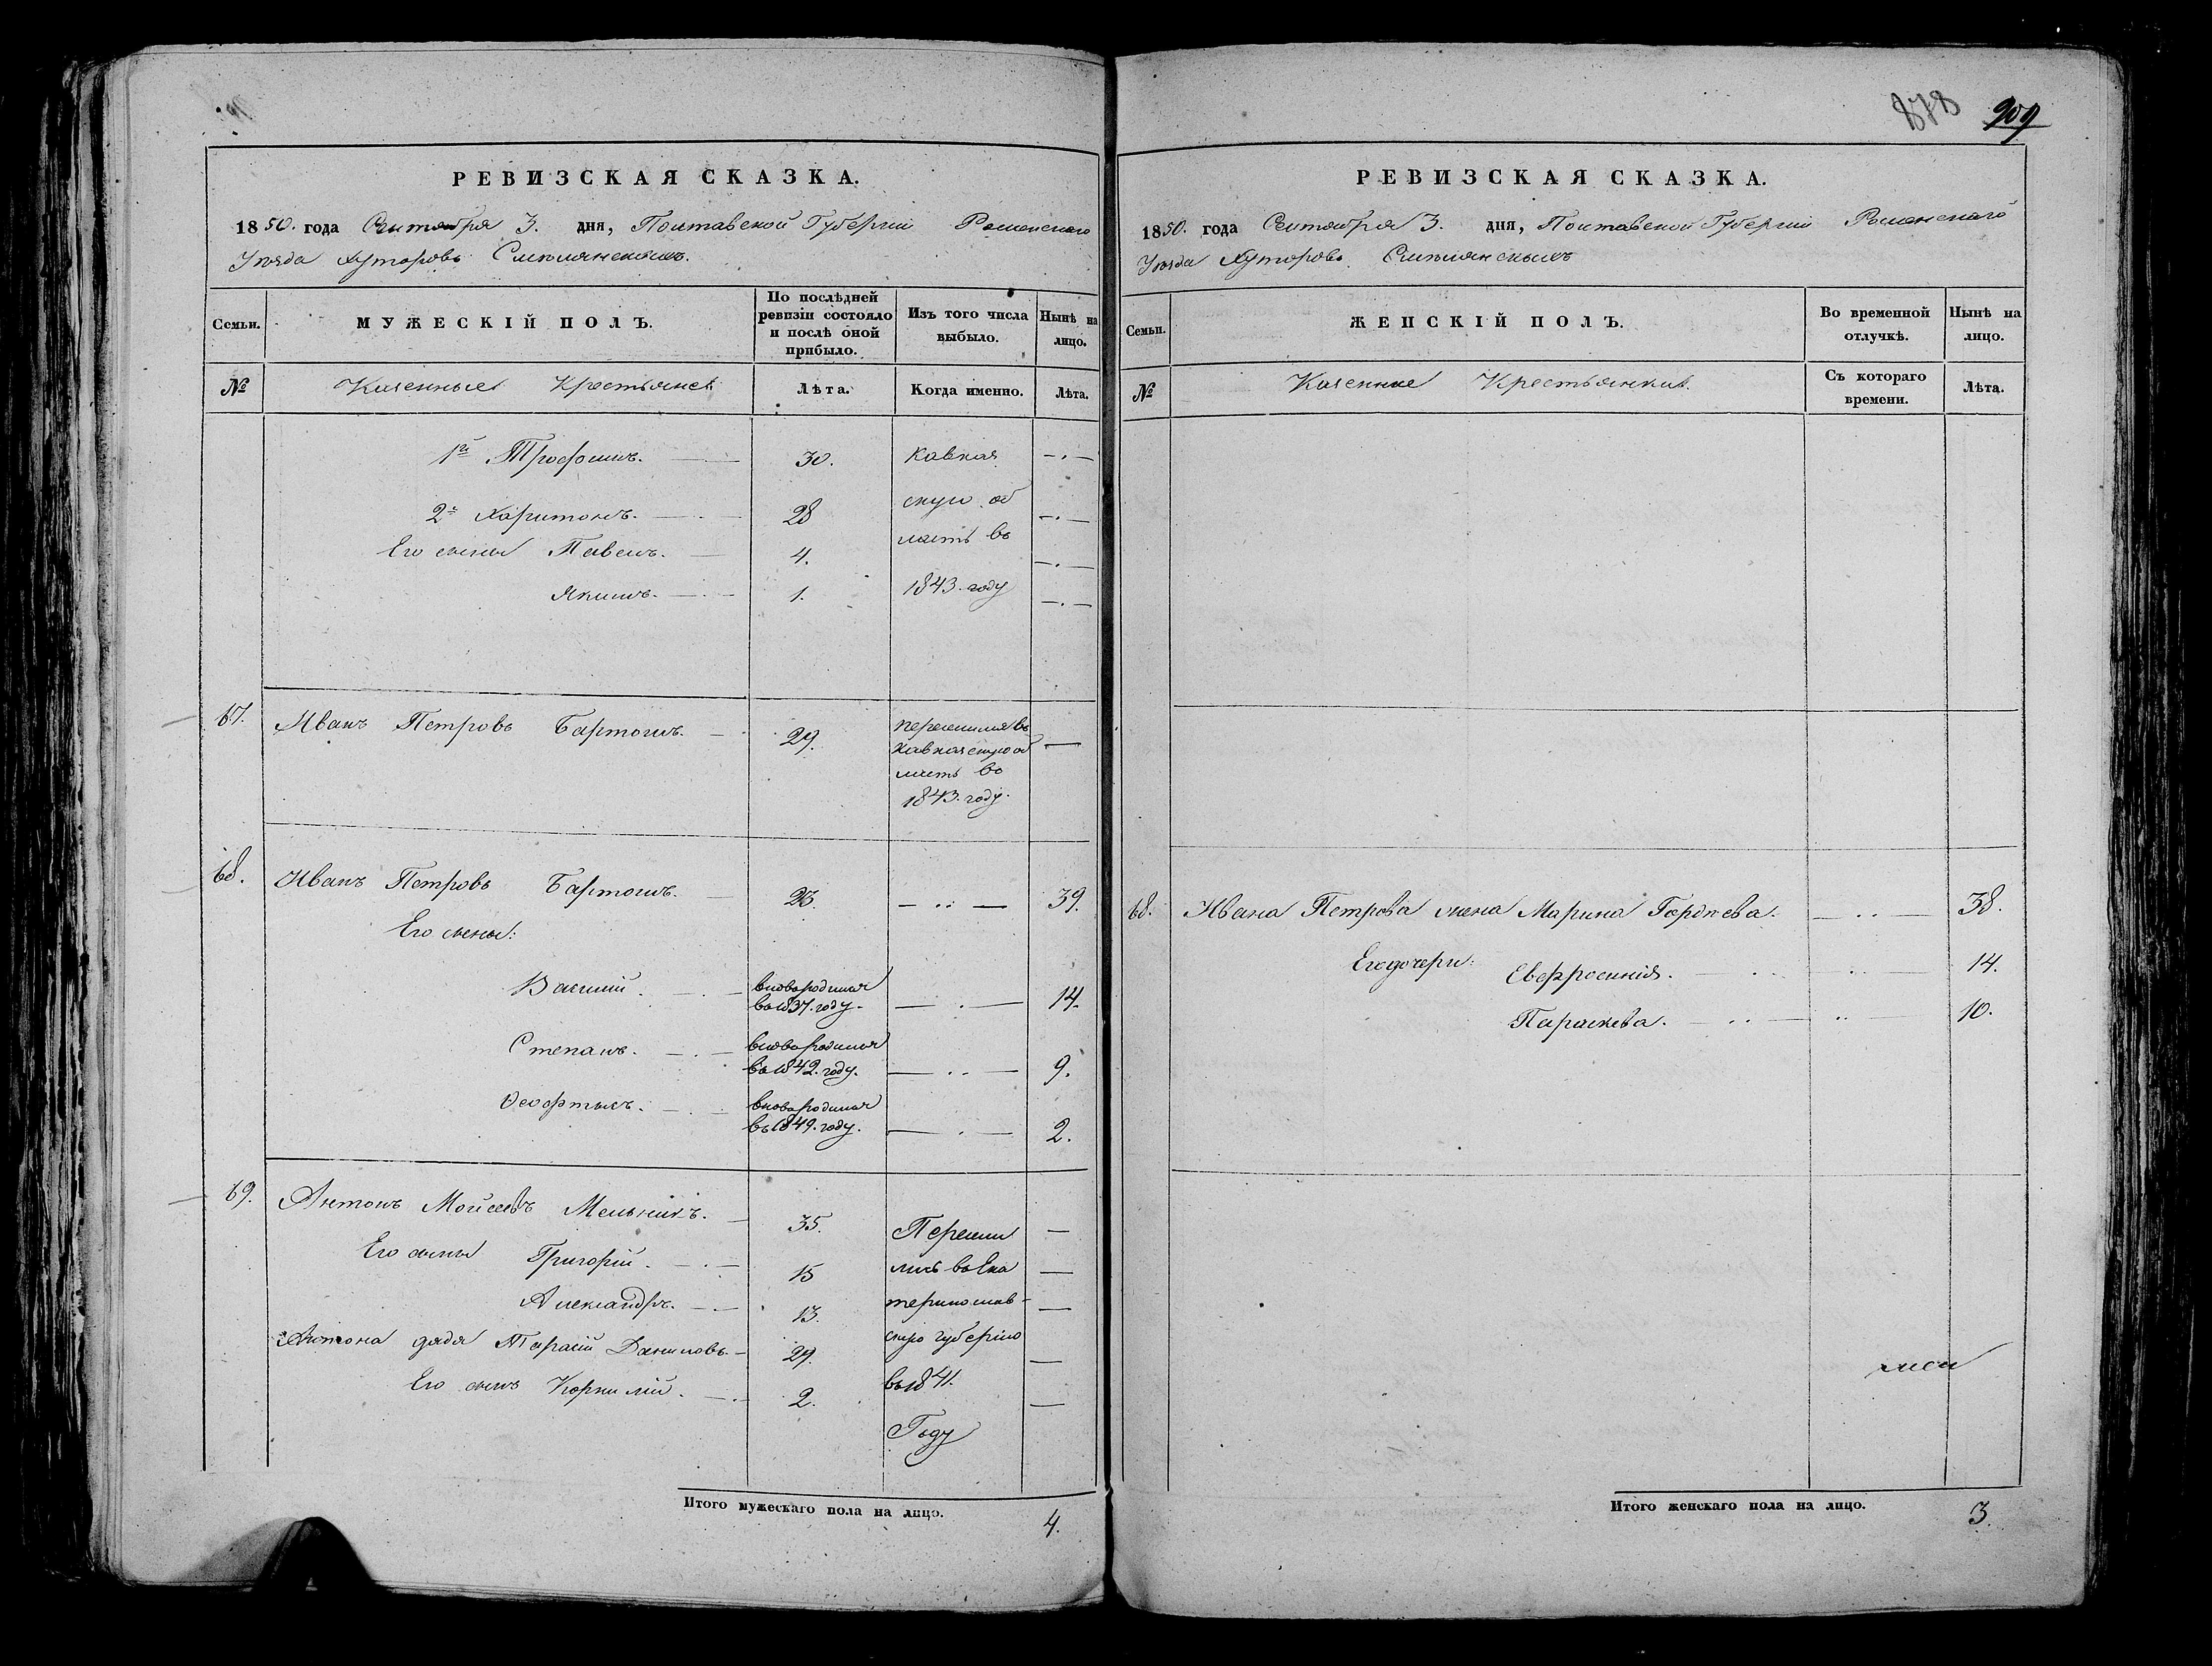 РЕВИЗСКАЯ СКАЗКА.
1850. года Сентября 3. дня, Полтавской Губерніи Роменскаго
Уѣзда Хуторовъ
Семьи.
МУЖЕСКІЙ ПОЛЪ.
По послѣдней ревизіи состояло и послѣ оной прибыло.
Изъ того числа выбыло.
Нынѣ на лицо.
№
Казенные Крестьяне
Лѣта.
Когда именно.
Лѣта.
1й Трофимъ. 30. Кавказ
2й Харитонъ. 28 скую об
Его сыны Павелъ. 4. ласть въ
Якимъ. 1. 1843. году
67. Иванъ Петровъ Бартошъ. 29. переселился въ
Кавказскую об
ласть въ
1843. году.
68. Иванъ Петровъ Бартошъ. 23. 39.
Его сыны:
Василій. вновьродился
въ 1837. году. 14.
Степанъ. вновьродился
въ 1842. году. 9.
Феофтыхъ. вновьродился
въ 1849. году. 2.
69. Антонъ Мойсеевъ Мельникъ. 35. Пересили
Его сыны Григорій. 15 лись въ Ека
Александръ. 13. теринослав-
Антона дядя Тарасій Даниловъ. 29. скую губернію
Его сынъ Корнилій. 2. въ 1841.
Году
Итого мужескаго пола на лицо. 4.
878 909
РЕВИЗСКАЯ СКАЗКА.
1850. года Сентября 3. дня, Полтавской Губерніи Роменскаго
Уѣзда Хуторовъ
Семьи.
ЖЕНСКІЙ ПОЛЪ.
Во временной отлучкѣ.
Нынѣ на лицо.
№
Казенные Крестьянки.
Съ котораго времени.
Лѣта.
68. Ивана Петрова жена Марина Гордѣева. 38.
Его дочери: Евфросинія. 14.
Параскева. 10.
Итого женскаго пола на лицо. 3.